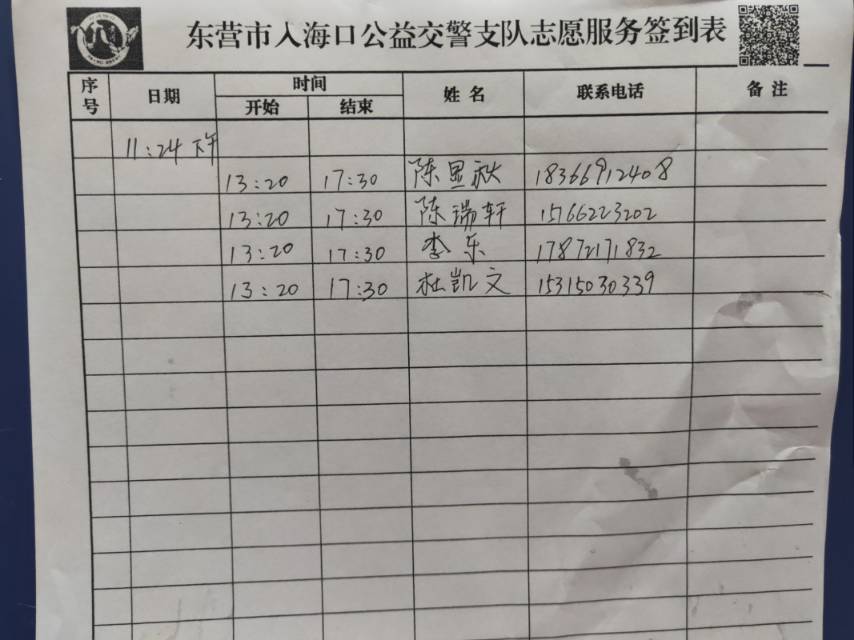 东营市入海口公益交警支队志愿服务签到表
序号 日期 时间 姓名 联系电话 备注
开始 结束
11:24 下午
13:20 17:30 陈昱秋 18366912408
13:20 17:30 陈瑞轩 15766223202
13:20 17:30 李乐 17872171832
13:20 17:30 杜凯文 15315030339